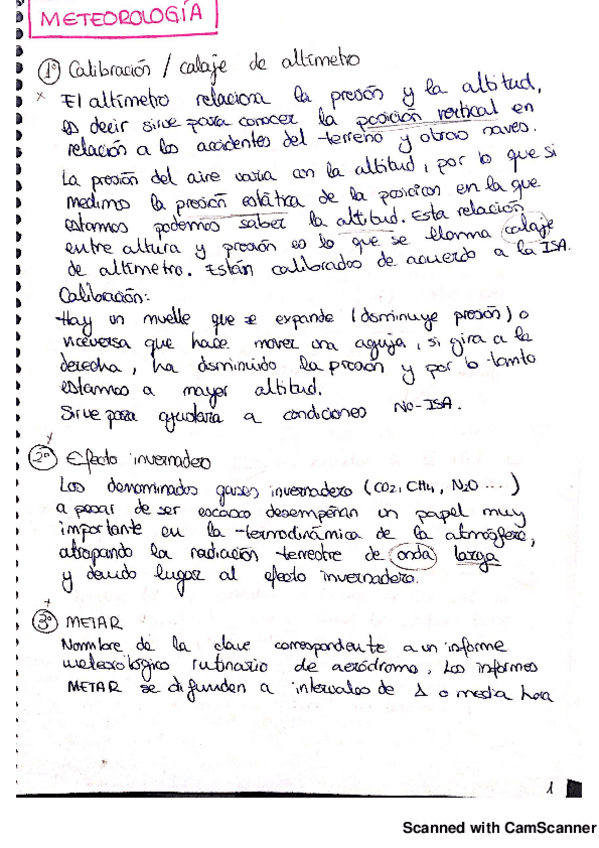 METEOROLOGÍA
1º Calibración / calaje de altímetro
x El altímetro relaciona la presión y la altitud,
es decir sirve para conocer la posición vertical en
relación a los accidentes del terreno y otras naves.
La presión del aire varia con la altitud, por lo que si
medimos la presión estática de la posición en la que
estamos podemos saber la altitud. Esta relación
entre altura y presión es lo que se llama calaje
de altímetro. Están calibrados de acuerdo a la ISA.
Calibración:
Hay un muelle que se expande (disminuye presión) o
viceversa que hace mover una aguja, si gira a la
derecha, ha disminuido la presión y por lo tanto
estamos a mayor altitud.
Sirve para ajustarla a condiciones NO-ISA.
x
2º Efecto invernadero
Los denominados gases invernadero (CO2, CH4, N2O ...)
a pesar de ser escasos desempeñan un papel muy
importante en la termodinámica de la atmósfera,
atrapando la radiación terrestre de onda larga
y dando lugar al efecto invernadero.
+
3º METAR
Nombre de la clave correspondente a un informe
meteorológico rutinario de aeródromo. Los informes
METAR se difunden a intervalos de 1 o media hora
1
Scanned with CamScanner